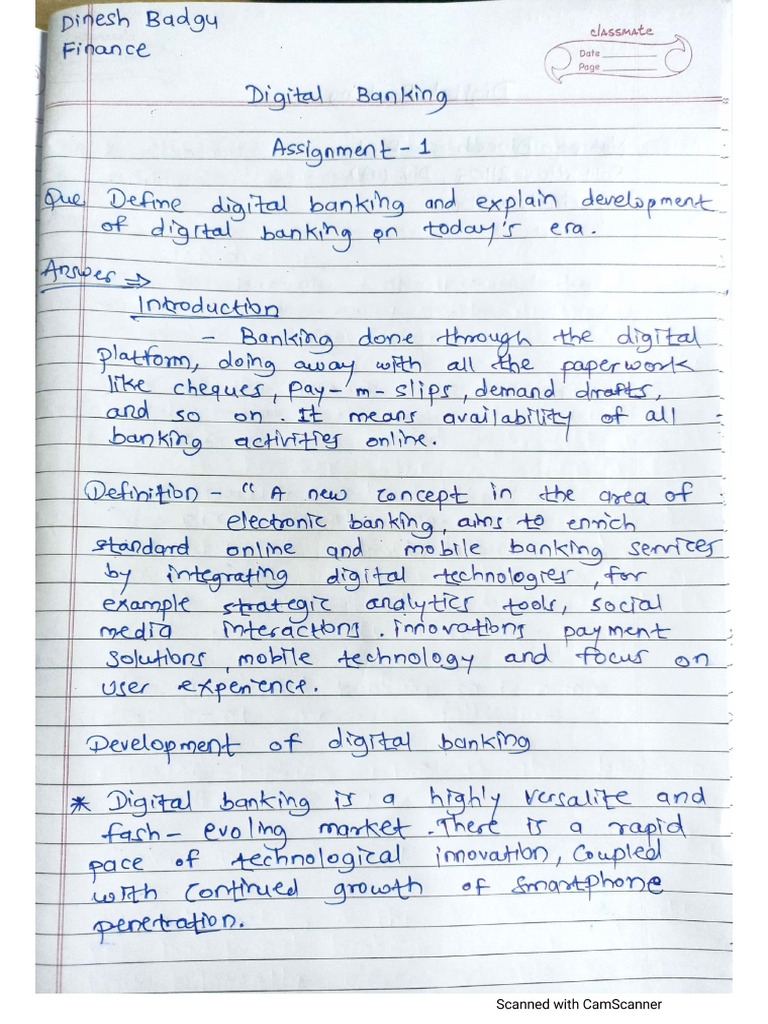 Dinesh Badgu
Finance
classmate
Date
Page
Digital Banking
Assignment - 1
Que Define digital banking and explain development
of digital banking on today's era.
Answer ⇒
Introduction
- Banking done through the digital
platform, doing away with all the paperwork
like cheques, pay-'m-slips, demand drafts,
and so on. It means availability of all
banking activities online.
Definition - "A new concept in the area of
electronic banking, aims to enrich
standard online and mobile banking services
by integrating digital technologies, for
example strategic analytics tools, social
media interactions. innovations payment
solutions, mobile technology and focus on
user experience.
Development of digital banking
* Digital banking is a highly versalite and
fash - evoling market. There is a rapid
pace of technological innovation, coupled
with continued growth of smartphone
penetration.
Scanned with CamScanner